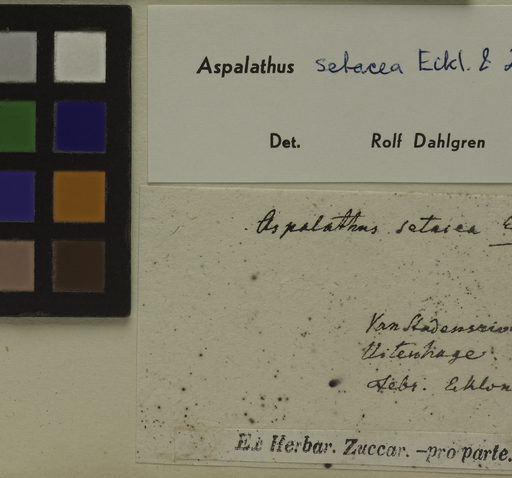 Aspalathus setacea Eckl. &
Det. Rolf Dahlgren
Aspalathus setacea
Uitenhage.
Ecklon
Ex Herbar. Zuccar. –pro parte.